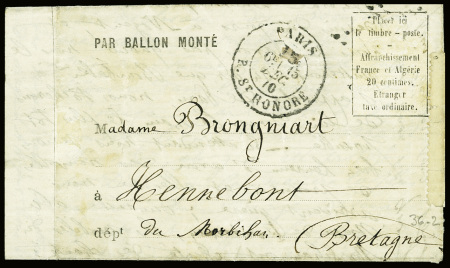 PAR BALLON MONTÉ
PARIS
R. St HONORÉ
70
Placer ici
le timbre-poste.
Affranchissement
France et Algérie
20 centimes.
Étranger
taxe ordinaire.
Madame Brongniart
à Hennebont
dépt du Morbihan (Bretagne
36-2